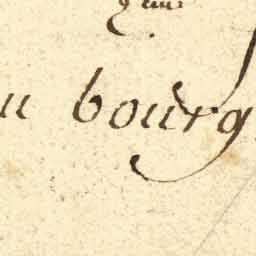 u bourg